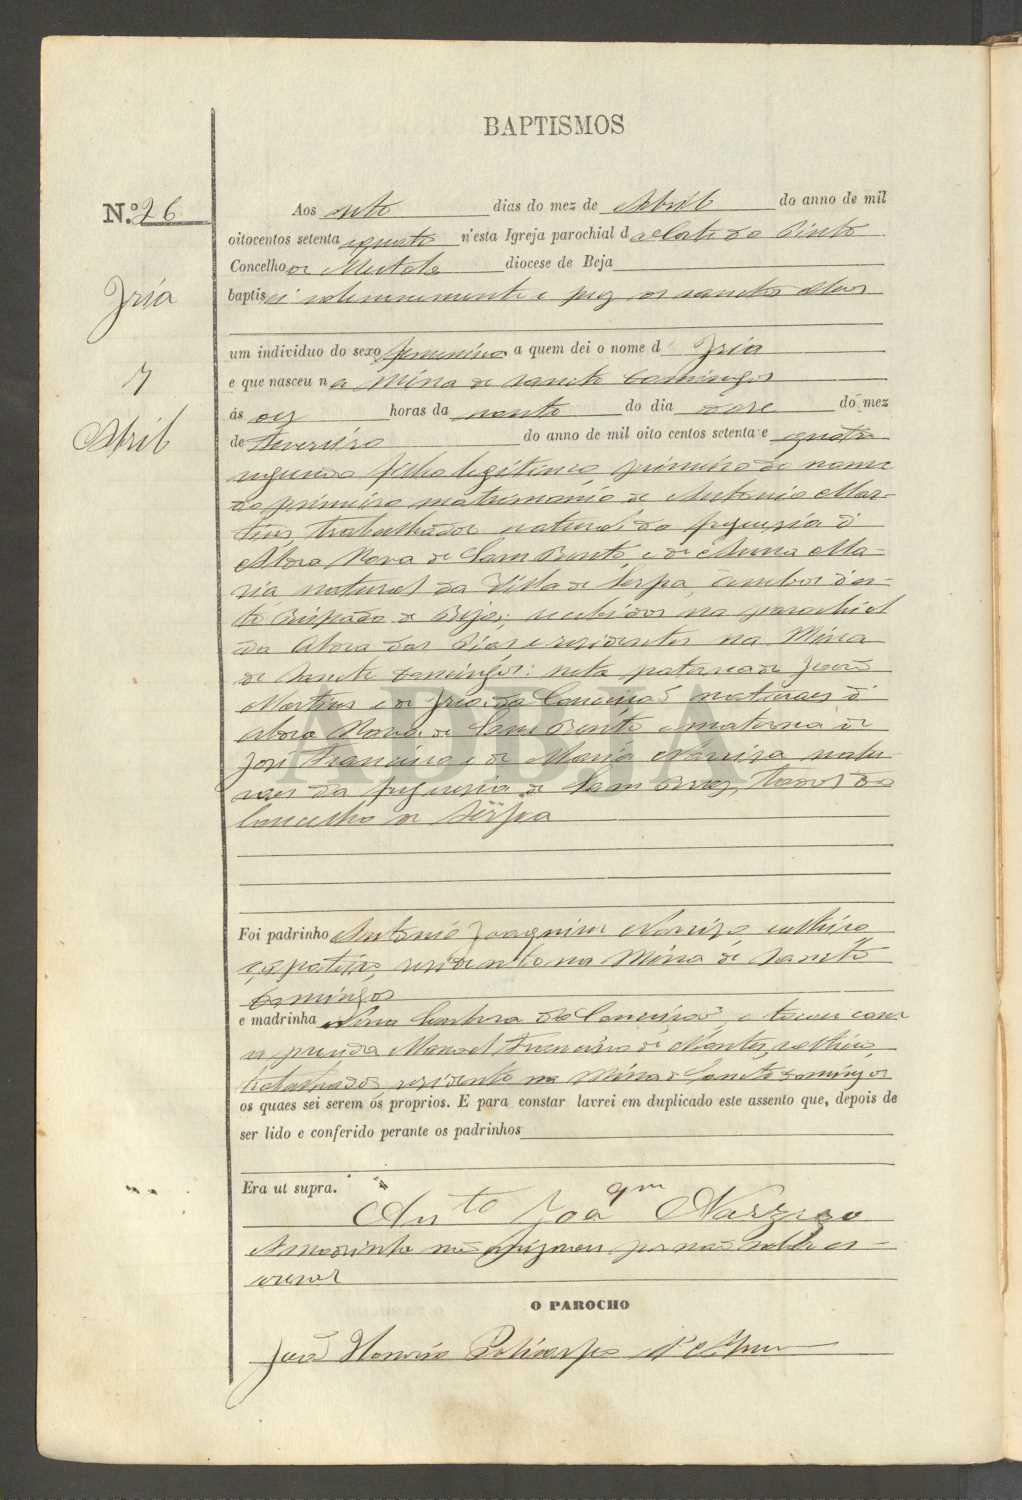 BAPTISMOS
N.º 26
Iria
7
Abril
Aos sete dias do mez de Abril do anno de mil
oitocentos setenta e quatro n'esta Igreja parochial d
Concelho de Mertola diocese de Beja
baptisei solemnemente e puz os sanctos oleos
um individuo do sexo femenino a quem dei o nome d Iria
e que nasceu na Mina de Sancto Domingos
ás dez horas da noute do dia doze do mez
de Fevereiro do anno de mil oito centos setenta e quatro
segunda filha legitima, primeira do nome
do primeiro matrimonio de Antonio Mar-
tins, trabalhador natural da freguezia d'
Aldea Nova de Sam Bento e de Anna Ma-
ria natural da Villa de Serpa, ambos d'es-
te Bispado de Beja; recebidos na parochial
da Aldea dos e residentes na Mina
de Sancto Domingos: neta paterna de João
Martins e de Iria da Conceição naturaes d'
Aldea Nova de Sam Bento e materna de
José Francisco e de Maria Narciza natu-
raes da freguezia de Sam Braz, todos do
Concelho de Serpa
ADBJA
Foi padrinho Antonio Joaquim Narcizo solteiro
çapateiro, residente na Mina de Sancto
Domingos
e madrinha da Conceição, e tocou com
a prenda Manoel Francisco de Montes, solteiro,
trabalhador residente na Mina de Sancto Domingos
os quaes sei serem os proprios. E para constar lavrei em duplicado este assento que, depois de
ser lido e conferido perante os padrinhos
Era ut supra.
Anto Joaqm Narzizo
A madrinha não assignou por não saber es-
crever
O PAROCHO
João Honorio Policarpo